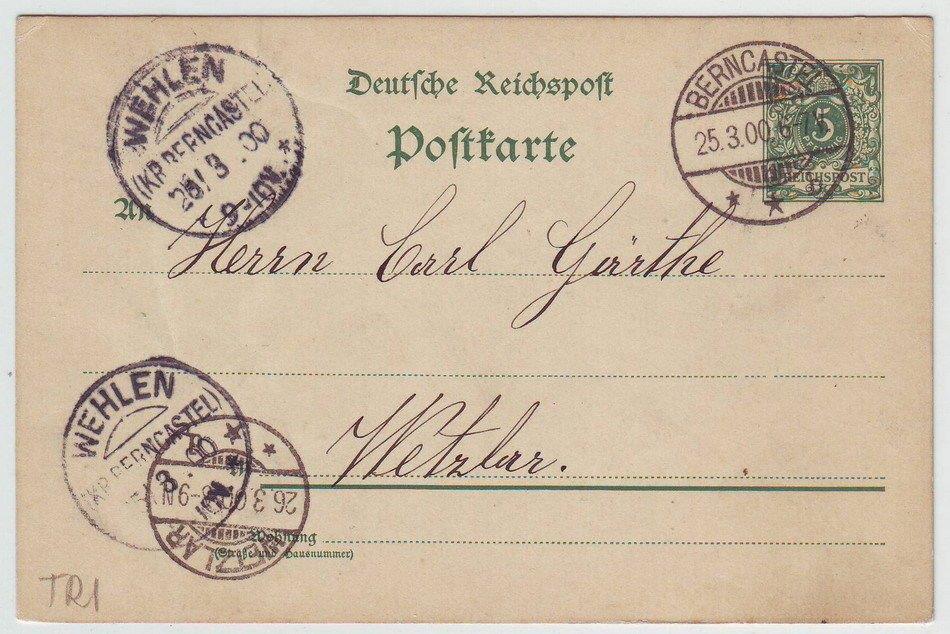 Deutsche Reichspost
Postkarte
WEHLEN
(KR.BERNCASTEL)
25/3 00
9-10V.
BERNCASTEL
25.3.00.6-7
5
REICHSPOST
An
Herrn Carl Gärthe
Wetzlar.
WEHLEN
(KR.BERNCASTEL)
3. 00
WETZLAR
26.3.00. 8-9N
Wohnung
(Straße und Hausnummer)
TR1